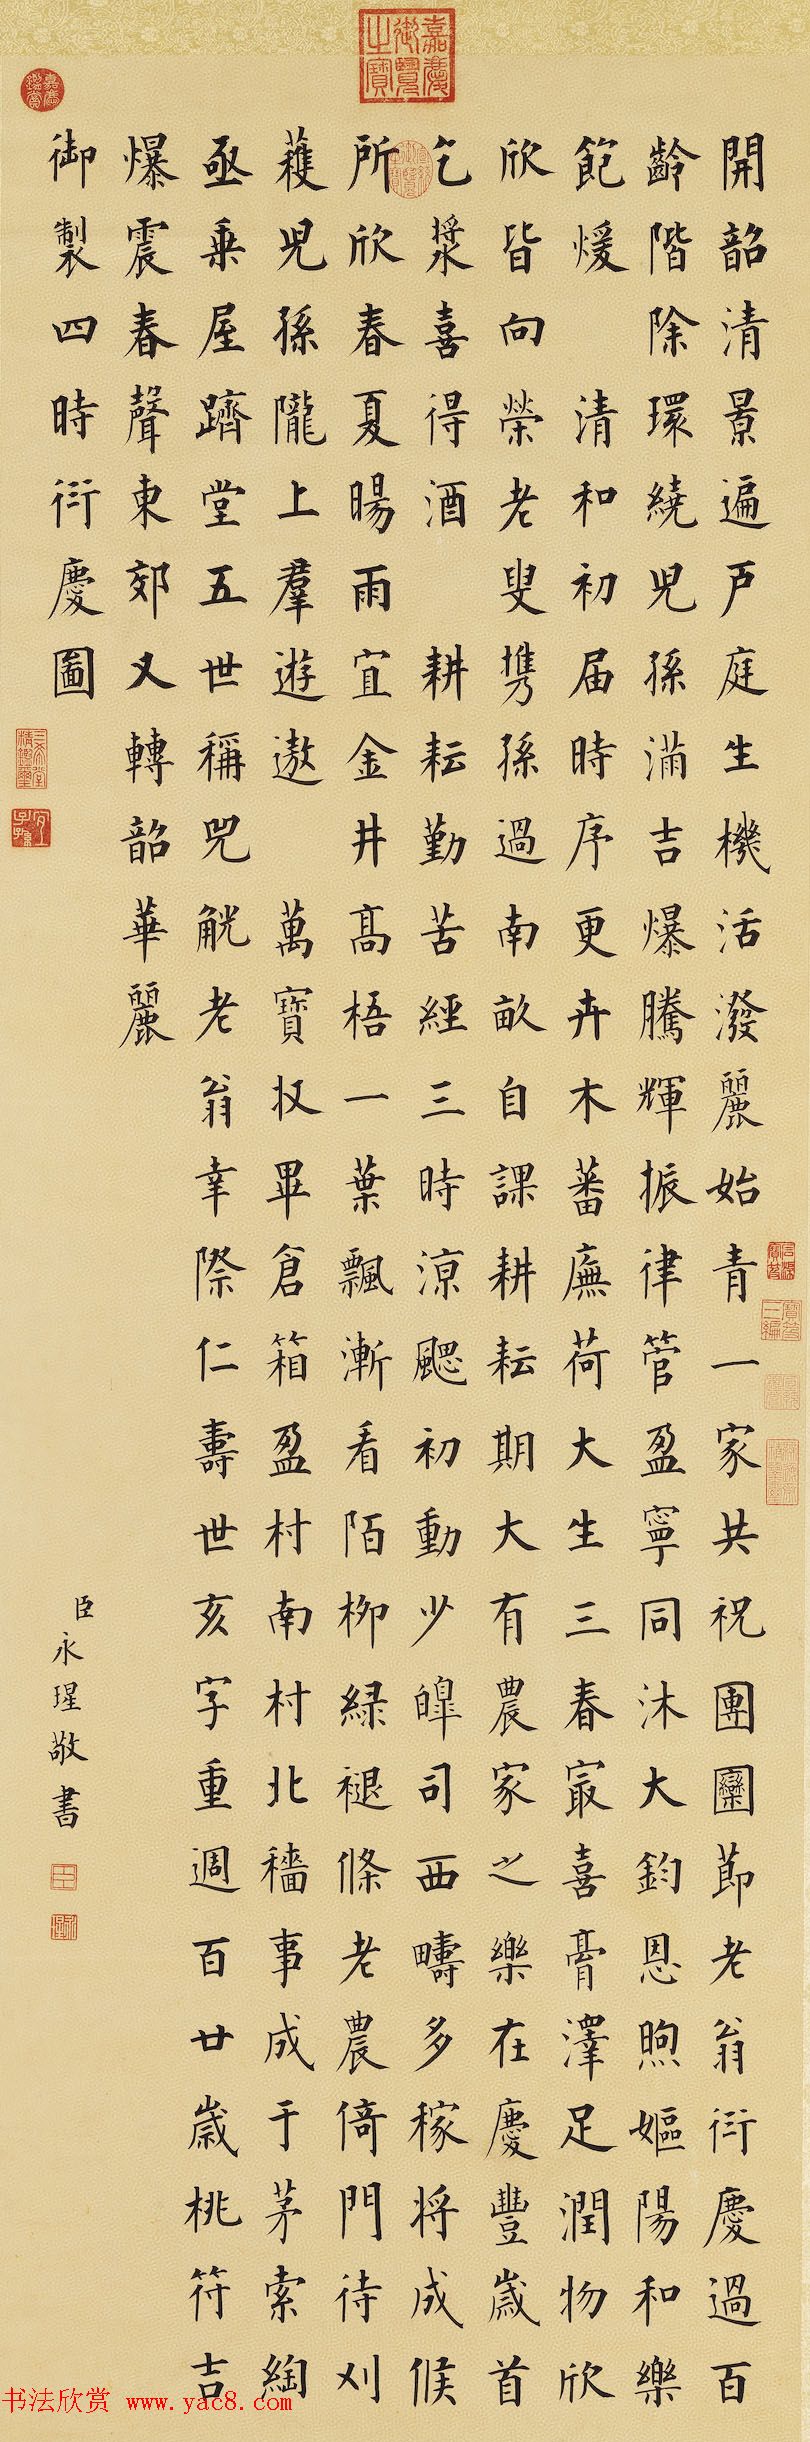 開韶清景遍戸庭生機活潑麗始青一家共祝團圞節老翁衍慶過百
齡階除環繞兒孫滿吉爆騰輝振律管盈寧同沐大鈞恩煦嫗陽和樂
飽煖 清和初届時序更卉木蕃廡荷大生三春冣喜膏澤足潤物欣
欣皆向榮老叟携孫過南畝自課耕耘期大有農家之樂在慶豐歲首
乞漿喜得酒 耕耘勤苦經三時涼颸初動少皥司西疇多稼将成候
所欣春夏暘雨宜金井高梧一葉飄漸看陌栁緑褪條老農倚門待刈
蒦兒孫隴上羣遊遨 萬寶収畢倉箱盈村南村北穡事成于茅索綯
亟乗屋躋堂五世稱兕觥老翁幸際仁壽世亥字重週百廿歲桃符吉
爆震春聲東郊又轉韶華麗
御製四時衍慶圖
臣永瑆敬書
嘉慶御覽之寶
嘉慶鑑賞
三希堂精鑑璽
宜子孫
書法欣赏 www.yac8.com